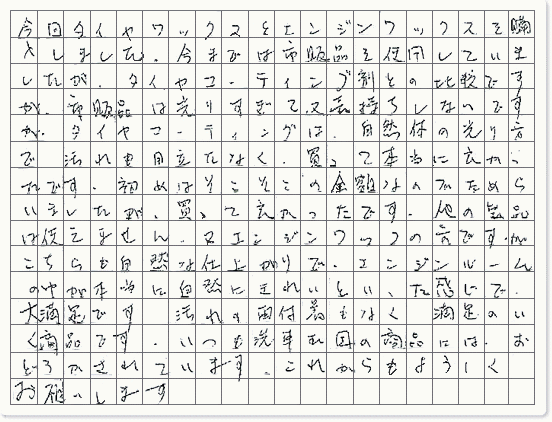 今回タイヤワックスとエンジンワックスを購
入しました。今までは市販品を使用していま
したが、タイヤコーティング剤との比較です
が、市販品は光りすぎて又長持ちしないです
が、タイヤコーティングは、自然体の光り方
で 汚れも目立たなく、買って本当に良かっ
たです。初めはそこそこの金額なのでためら
いましたが、買って良かったです。他の製品
は使えません。又エンジンワックの方ですが
こちらも自然な仕上がりで、エンジンルーム
の中が本当に自然にきれいといった感じで、
大満足です 汚れの 付着もなく 満足のい
く商品です。いつも洗車 国の商品には、お
どろかされています。これからもよろしく
お願いします